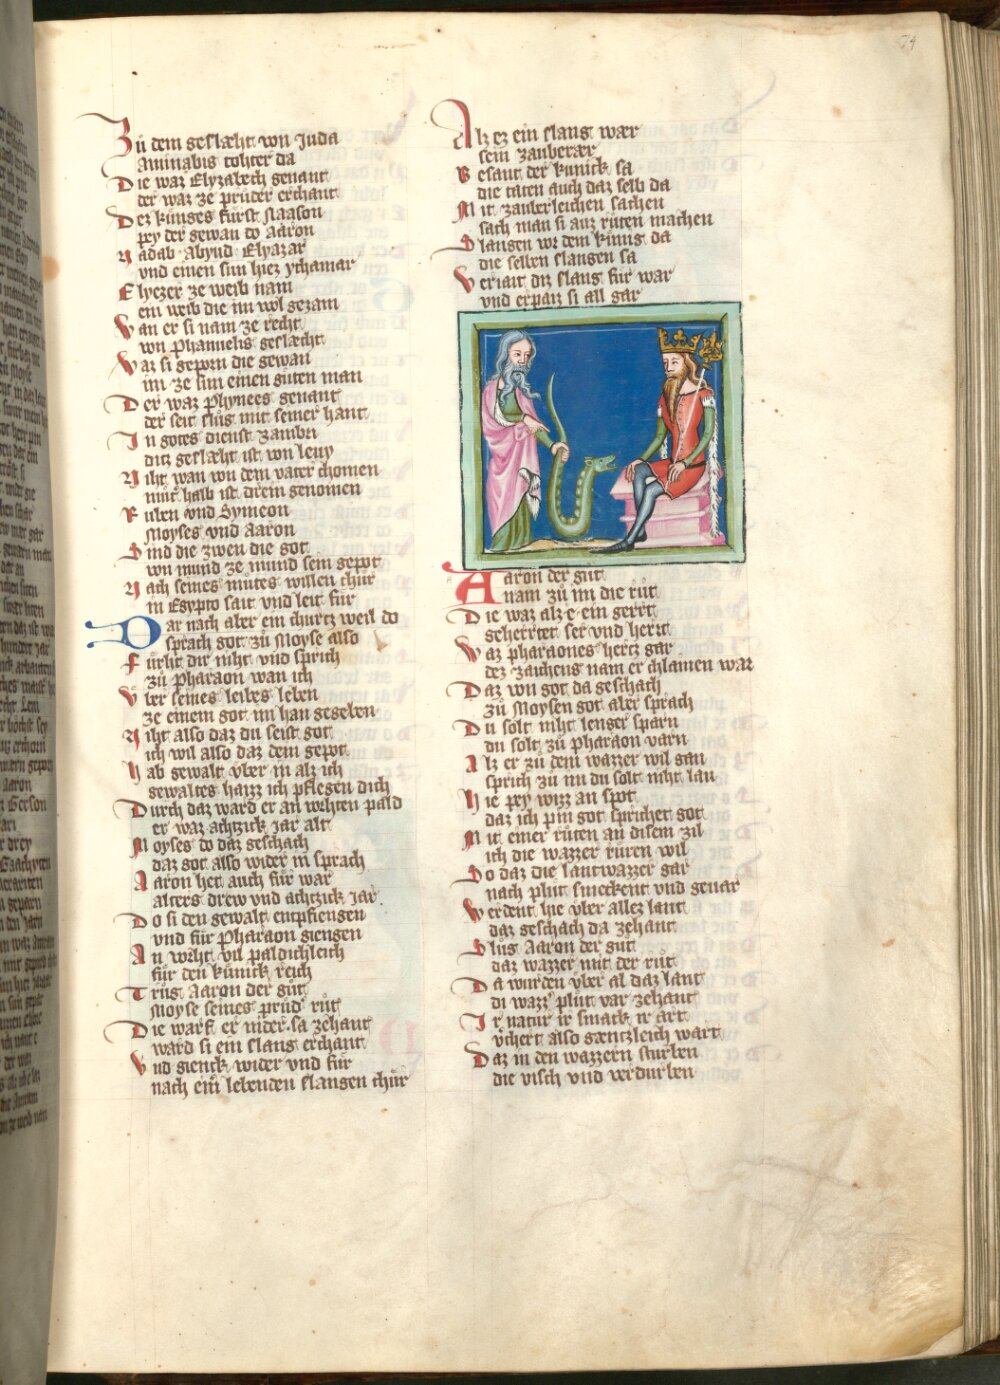 74
Zů dem geslæht von Juda
Aminabis tohter da
Die waz Elyzabech genant
der waz ze průder erchant
Dez kunges furst Naason
pey der gewan do Aaron
Nadab Abyud Elyazar
vnd einen sun hiez ythamar
Elyezer ze weib nam
ein weib die im wol gezam
Wan er si nam ze recht
von Phannelis geslæcht
Waz si geporn die gewan
im ze sun einen gůten man
Der waz Phynees genant
der seit slůg mit seiner hant
In gotes dienst zambri
ditz geslæht ist von leuy
Niht wan von dem vater chomen
můt halb ist drein genomen
Ruben vnd Symeon
Moyses vnd Aaron
Sind die zwen die got
von mund ze mund sein gepot
Nach seines můtes willen chůr
in Egypto sait vnd leit fůr
Dar nach aber ein churtz weil do
sprach got zů Moyse also
Fůrht dir niht vnd sprich
zů Pharaon wan ich
Vber seines leibes leben
ze einem got im han gegeben
Niht also daz du seist got
ich wil also daz dem gepot
Hab gewalt vber in alz ich
gewaltes haizz ich pflegen dich
Durch daz ward er an vorhten pald
er waz achtzick jar alt
Moyses do daz geschach
daz got also wider in sprach
Aaron het auch fůr war
alters drew vnd achtzick jar
Do si den gewalt enpfiengen
vnd fůr Pharaon giengen
An vorht vil paldichleich
fůr den kůnick reich
Trůg Aaron der gůt
Moyse seines průd růt
Die warf er nider sa zehant
ward si ein slang erchant
Vnd gienck wider vnd fůr
nach eim lebenden slangen chůr
Alz ez ein slang wær
sein zauberær
Besant der kůnick sa
die taten auch daz selb da
Mit zauberleichen sachen
sach man si auz růten machen
Slangen vor dem kůnig da
die selben slangen sa
Veriait diz slang fůr war
vnd erpaiz si all gar
Aaron der gůt
nam zů im die růt
Die waz alz e ein gerrt
geherrtet ser vnd herrt
Waz pharaones hertz gar
dez zaichens nam er chlainen war
Daz von got da geschach
zů Moysen got aber sprach
Du solt niht lenger sparn
du solt zů pharaon varn
Alz er zů dem wazzer wil gan
sprich zů im du solt niht lan
Hie pey wizz an spot
daz ich pin got sprichet got
Mit einer růten an disem zil
ich die wazzer růren wil
So daz die lantwazzer gar
nach plůt smeckent vnd geuar
Werdent hie vber allez lant
daz geschach da zehant
Slůg Aaron der gůt
daz wazzer mit der růt
Da wurden vber al daz lant
di wazz plůt var zehant
Ir natur ir smack ir art
v̊chert also gæntzleich wart
Daz in den wazzern sturben
die visch vnd verdurben